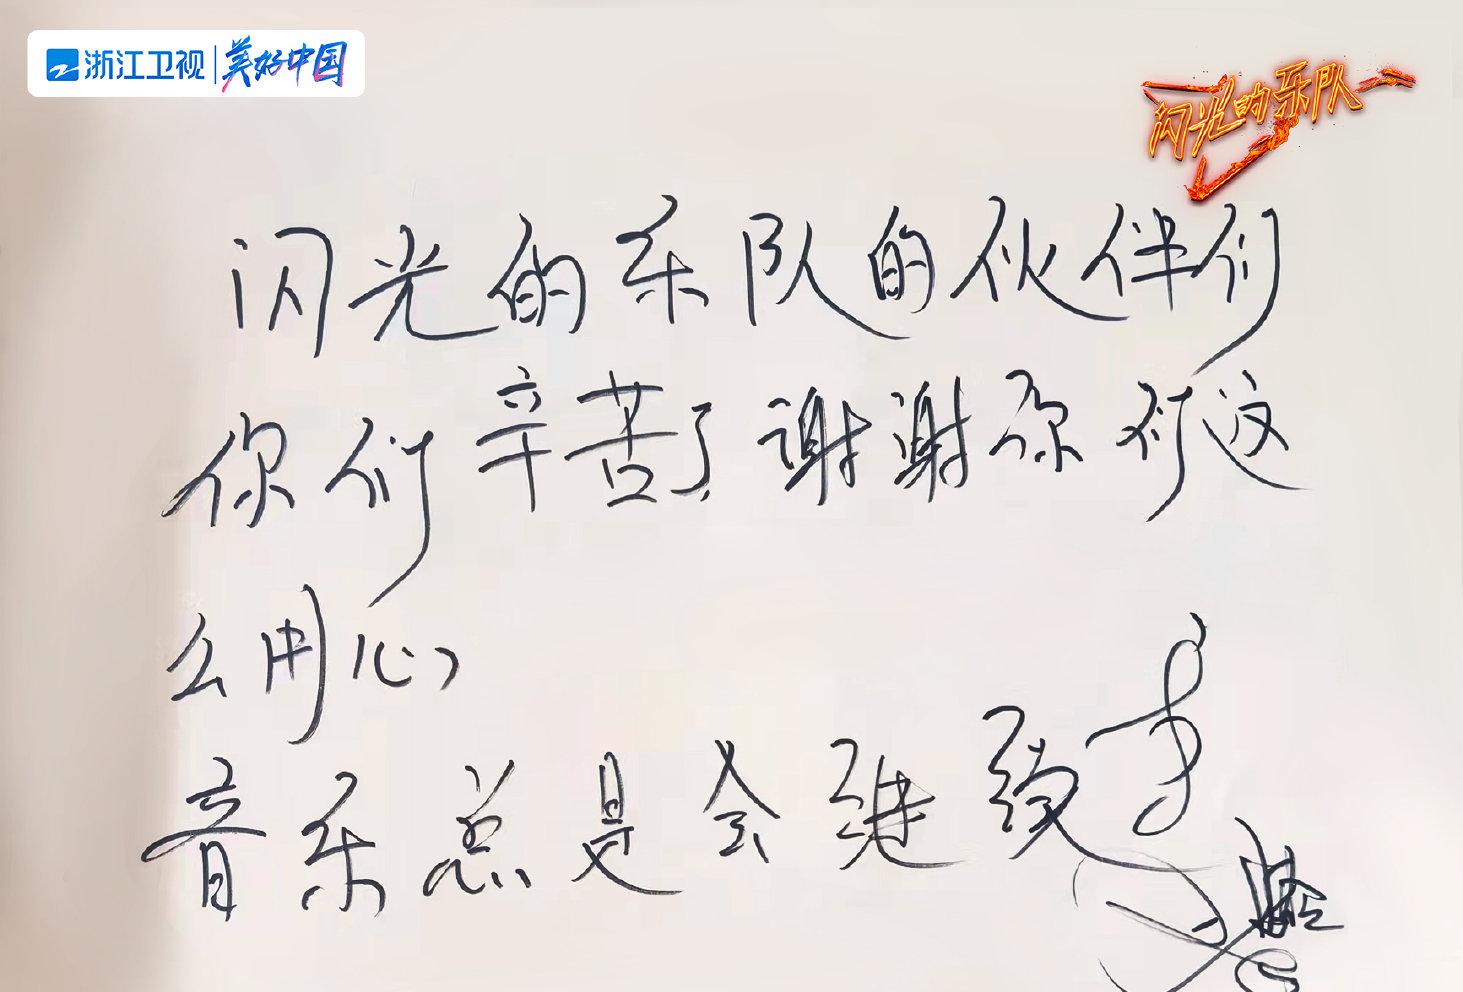 浙江卫视 美好中国
闪光的乐队
闪光的乐队的伙伴们
你们辛苦了 谢谢你们这
么用心
音乐总是会继续